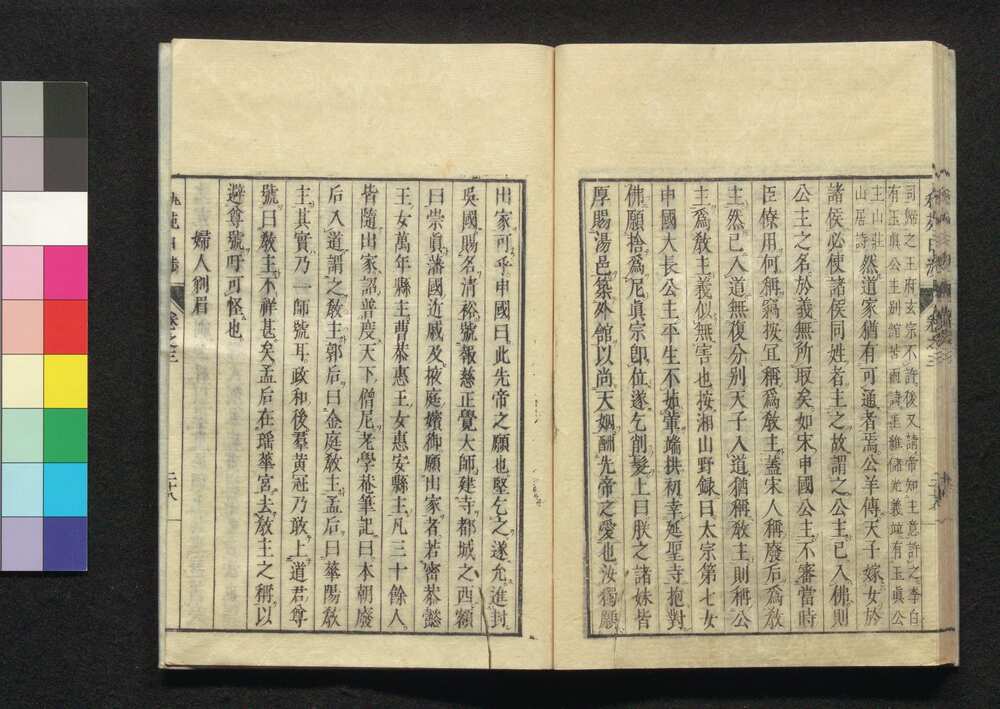 司馬之王府玄宗不許後又請帝知主意許之李白
有玉眞公主別館苦雨詩王維儲光羲竝有玉眞公
主山莊
山居詩然道家猶有可通者焉公羊傳天子嫁女於
諸侯必使諸侯同姓者主之故謂之公主已入佛則
公主之名於義無所取矣如宋申國公主不審當時
臣僚用何稱竊按宜稱爲敎主蓋宋人稱廢后爲敎
主然已入道無復分別天子入道猶稱敎主則稱公
主爲敎主義似無害也按湘山野録曰太宗第七女
申國大長公主平生不茹葷端拱初幸延聖寺抱對
佛願捨爲尼眞宗卽位遂乞削髮上曰朕之諸妹皆
厚賜湯邑築外館以尚天姻酬先帝之愛也汝獨願
出家可乎申國曰此先帝之願也堅乞之遂允進封
吳國賜名淸裕號報慈正覺大師建寺都城之西額
曰崇眞藩國近戚及掖庭嬪御願出家者若密恭懿
王女萬年縣主曹恭惠王女惠安縣主凡三十餘人
皆隨出家詔普度天下僧尼老學菴筆記曰本朝廢
后入道謂之敎主郭后曰金庭敎主孟后曰華陽敎
主其實乃一師號耳政和後羣黄冠乃敢上道君尊
號曰敎主不祥甚矣孟后在瑤華宮去敎主之稱以
避尊號吁可怪也
婦人剃眉
卷之三
二十八